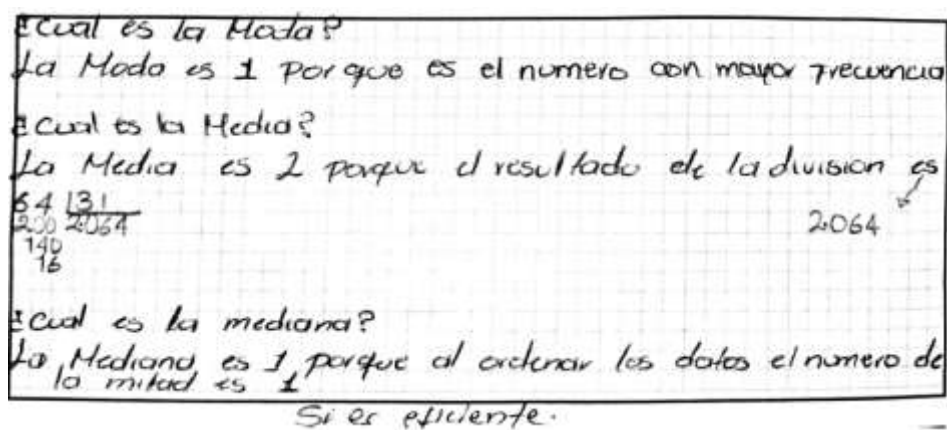 ¿Cual es la Moda?
La Moda es 1 porque es el numero con mayor frecuencia
¿Cual es la Media?
La Media es 2 porque el resultado de la division es
64 |31
200 2064
2064
140
16
¿Cual es la mediana?
La Mediana es 1, porque al ordenar los datos el numero de
la mitad es 1
Si es eficiente.